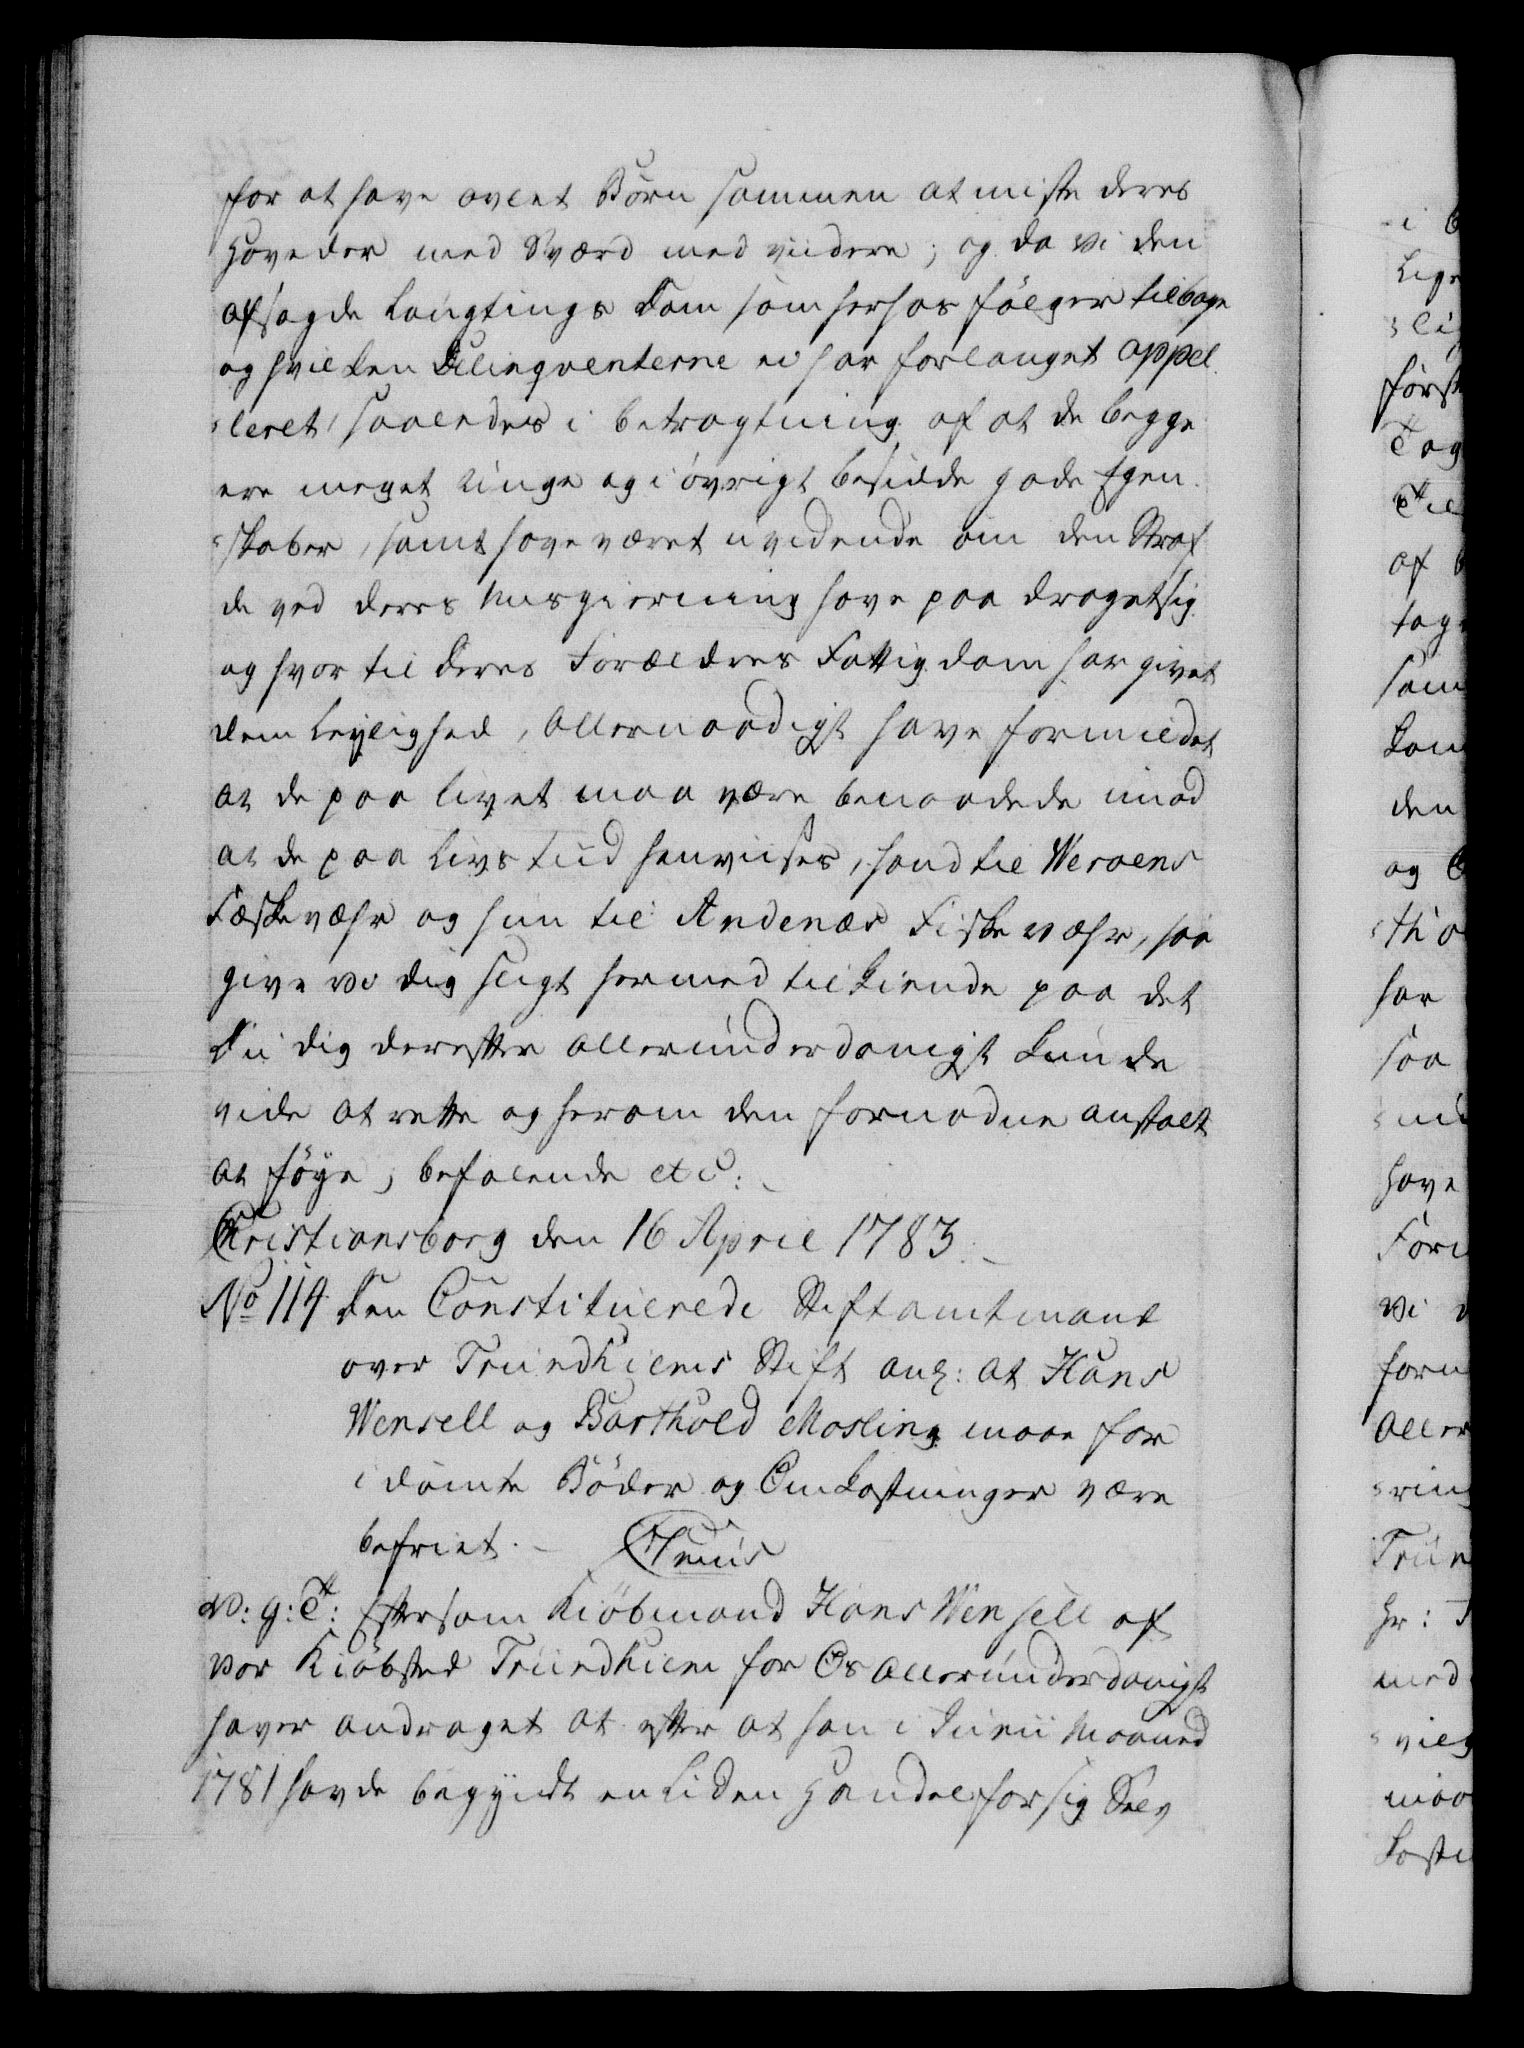 for at have avlet Børn sammen at miste deres
Hoveder med Sværd med viidere; og da Vi den
afsagde Laugtings Dom som herhos følger tilbage
og hvilken Delinqventerne ei har forlanget appel-
leret, saaledes i betragtning af at de begge
ere meget unge og i øvrigt besidde gode Egen-
skaber, samt have været uvidende om den Straf
de ved deres Misgierning have paa draget sig
og hvor til deres Forældres Fattigdom har givet
dem Leylighed, Allernaadigst have formildet
at de paa livet maa være benaadede imod
at de paa Livs tiid henviises, hand til Weroens
Fæskevæhr og hun til Andenæs Fiskevæhr, saa
give vi dig sligt hermed tilkiende paa det
Du dig derefter allerunderdanigst kunde
vide at rette og herom den fornødne anstalt
at føye, befalende etc:
Christiansborg den 16 April 1783
No 114 Den Constituerede Stiftamtmand
over Trundhiems Stift anl: at Hans
Wensell og Barthold Mosling maae for
idømte Bøder og Omkostninger være
befriet.
V: G: T: Eftersom Kiøbmand Hans Wensell af
vor Kiøbsted Trundhiem for Os allerunderdanigst
haver andraget at efter at han i Junii Maaned
1781 havde begyndt en liden Handel for sig Selv
i
Lige
første
Tog
Til
af
tage
som
den
og
har
saa
have
vi
Aller
Hr:
med
maa